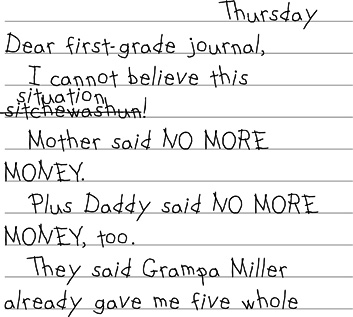 Thursday
Dear first-grade journal,
I cannot believe this
situation
sitchewashun!
Mother said NO MORE
MONEY.
Plus Daddy said NO MORE
MONEY, too.
They said Grampa Miller
already gave me five whole